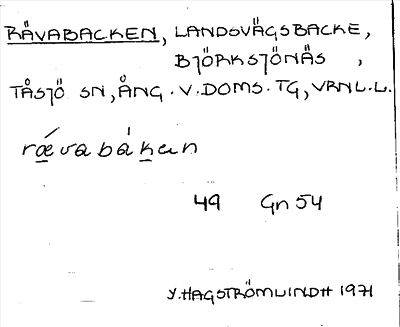 RÄVABACKEN, LANDSVÄGSBACKE,
BJÖRKSJÖNÄS ,
TÅSJÖ SN, ÅNG. V. DOMS. TG, VRNL. L.
rǽvabáken
49 Gn 54
Y. HAGSTRÖMLINDH 1971